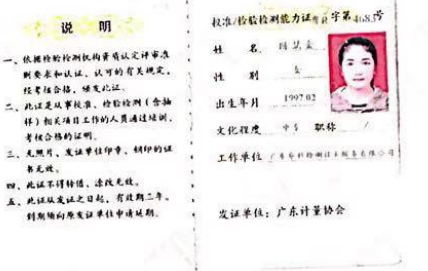 说 明
一、依据检验检测机构资质认定评审准
则要求和认证、认可的有关规定,
经考核合格,颁发此证。
二、此证是从事校准、检验检测(含抽
样)相关项目工作的人员通过培训、
考核合格的证明。
三、无照片、发证单位印章、钢印的证
书无效。
四、此证不得转借、涂改无效。
五、此证从发证之日起,有效期二年。
到期须向原发证单位申请延期。
校准/检验检测能力证 字第 号
姓 名
性 别 女
出生年月 1997.02
文化程度 中专 职称 /
工作单位
发证单位:广东计量协会